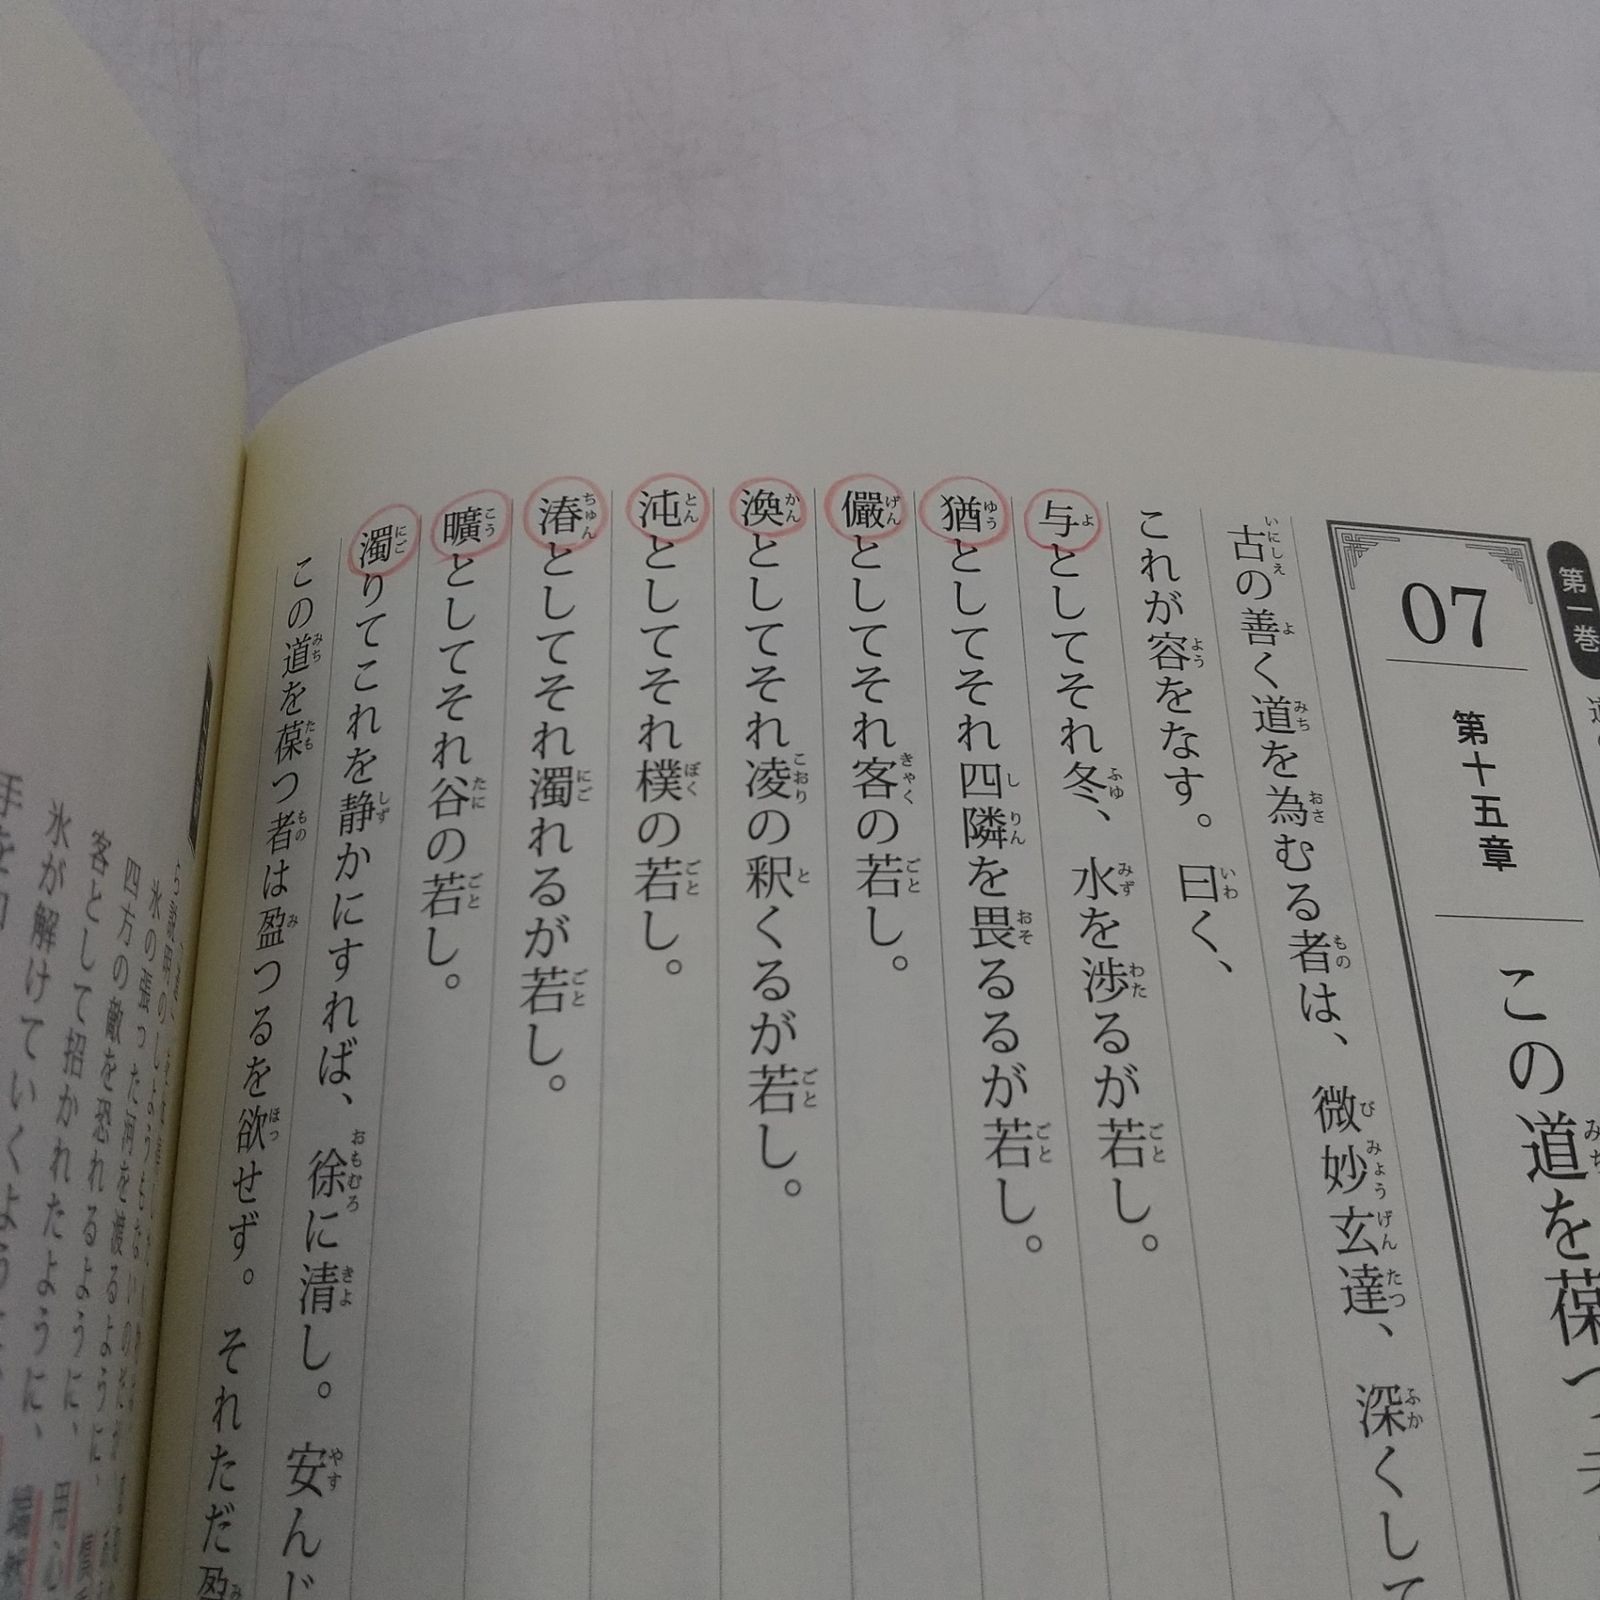 第一巻
07
第十五章
この道を葆つ
古の善く道を為むる者は、微妙玄達、深くして
これが容をなす。曰く、
与としてそれ冬、水を渉るが若し。
猶としてそれ四隣を畏るるが若し。
儼としてそれ客の若し。
渙としてそれ凌の釈くるが若し。
沌としてそれ樸の若し。
湷としてそれ濁れるが若し。
曠としてそれ谷の若し。
濁りてこれを静かにすれば、徐に清し。安んじ
この道を葆つ者は盈つるを欲せず。それただ盈
氷の張った河を渡るように
四方の敵を恐れるように、
客として招かれたように、
氷が解けていくように、
用心